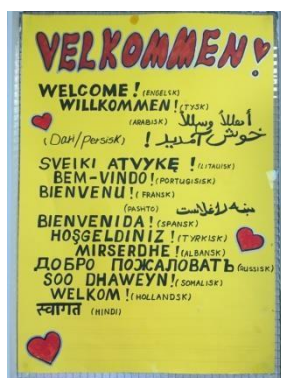 VELKOMMEN!
WELCOME! (ENGELSK)
WILLKOMMEN! (TYSK)
(ARABISK) أهلاً وسهلاً
(DARI/PERSISK) خوش آمدید!
SVEIKI ATVYKĘ! (LITAUISK)
BEM-VINDO! (PORTUGISISK)
BIENVENU! (FRANSK)
(PASHTO) ښه راغلاست
BIENVENIDA! (SPANSK)
HOŞGELDINIZ! (TYRKISK)
MIRSERDHE! (ALBANSK)
ДОБРО ПОЖАЛОВАТЬ (RUSSISK)
SOO DHAWEYN! (SOMALISK)
WELKOM! (HOLLANDSK)
स्वागत (HINDI)